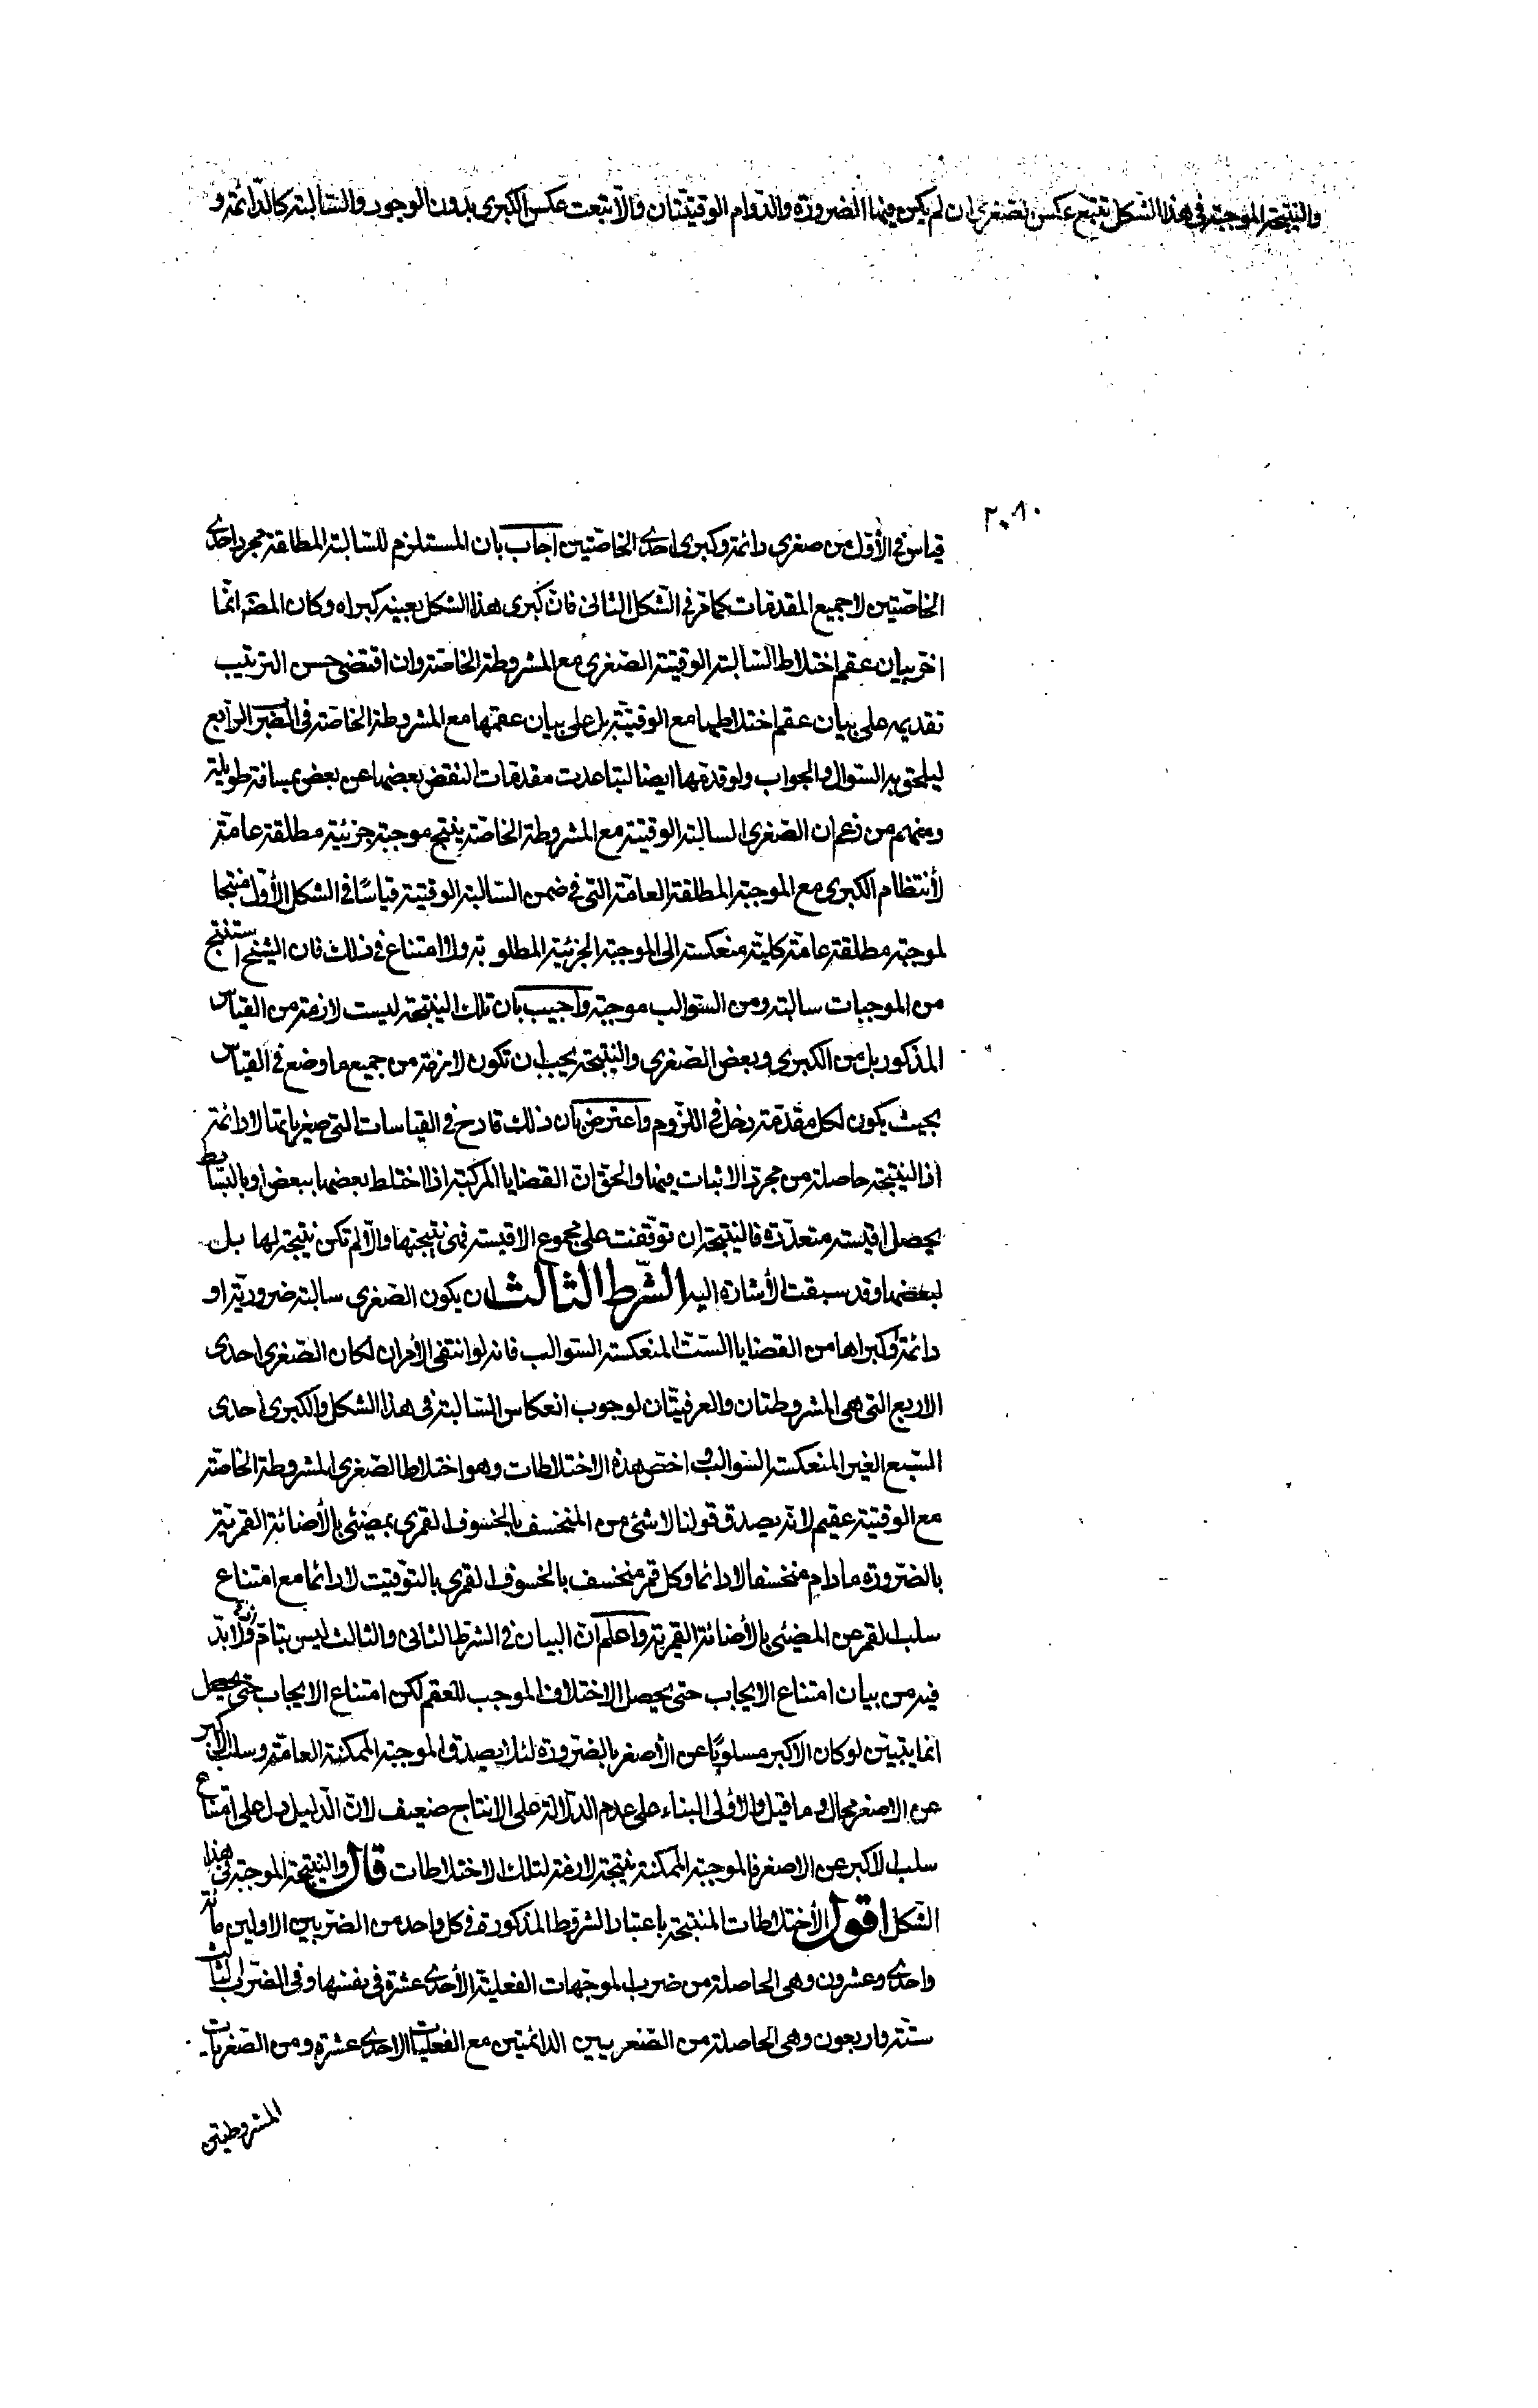 والنتيجة الموجبة في هذا الشكل تتبع عكس الصغرى ان لم يكن فيها الضرورة والدوام الوقيتتان والا تبعت عكس الكبرى بدون الوجود والسالبة كالدائمة و
٢٠٨٠
قياس في الأول من صغرى دائمة وكبرى احدى الخاصتين اجاب بان المستلزم للسالبة المطلقة مجرد احدى
الخاصتين لا جميع المقدمات كما مر في الشكل الثانى فان كبرى هذا الشكل بعينه كبراه وكان المصـ انما
اخر بيان عقم اختلاط السالبة الوقتية الصغرى مع المشروطة الخاصة وان اقتضى حسن الترتيب
تقديمه على بيان عقم اختلاطها مع الوقتية بل على بيان عقمها مع المشروطة الخاصة في الضرب الرابع
ليلحق به السؤال والجواب ولو قدمها ايضا لتباعدت مقدمات النقض بعضها عن بعض بمسافة طويلة
ومنهم من زعم ان الصغرى السالبة الوقتية مع المشروطة الخاصة ينتج موجبة جزئية مطلقة عامة
لأنتظام الكبرى مع الموجبة المطلقة العامة التى في ضمن السالبة الوقتية قياسًا في الشكل الأول منتجا
لموجبة مطلقة عامة كلية منعكسة الى الموجبة الجزئية المطلوبة ولا امتناع في ذلك فان الشيخ استنتج
من الموجبات سالبة ومن السوالب موجبة واجيب بان تلك النتيجة ليست لازمة من القياس
المذكور بل من الكبرى وبعض الصغرى والنتيجة يجب ان تكون لازمة من جميع ما وضع في القياس
بحيث يكون لكل مقدمة دخل في اللزوم واعترض بان ذلك قادح في القياسات التى صغرياتها لا دائمة
اذ النتيجة حاصلة من مجرد الاثبات فيها والحق ان القضايا المركبة اذا اختلط بعضها ببعض او بالبسائط
يحصل اقيسة متعددة فالنتيجة ان توقفت على مجموع الاقيسة فهى نتيجتها والا لم تكن نتيجة لها بل
لبعضها وقد سبقت الأشارة اليه الشرط الثالث ان يكون الصغرى سالبة ضرورية او
دائمة وكبراها من القضايا الست المنعكسة السوالب فانه لو انتفى الأمران لكان الصغرى احدى
الاربع التى هى المشروطتان والعرفيتان لوجوب انعكاس السالبة في هذا الشكل والكبرى احدى
السبع الغير المنعكسة السوالب واخص هذه الاختلاطات وهو اختلاط الصغرى المشروطة الخاصة
مع الوقتية عقيم لانه يصدق قولنا لا شئ من المنخسف بالخسوف القمرى بمضئى بالأضائة القمرية
بالضرورة ما دام منخسفا لا دائما وكل قمر منخسف بالخسوف القمرى بالتوقيت لا دائما مع امتناع
سلب القمر عن المضئى بالأضائة القمرية واعلم ان البيان في الشرط الثانى والثالث ليس بتام فانه لا بد
فيه من بيان امتناع الايجاب حتى يحصل الاختلاف الموجب للعقم لكن امتناع الايجاب حتى يحصل
انما يتبين لو كان الاكبر مسلوبًا عن الأصغر بالضرورة لئلا يصدق الموجبة الممكنة العامة وسلب الاكبر
عن الاصغر محال وما قيل والاولى البناء على عدم الدلالة على الانتاج ضعيف لان الدليل دل على امتناع
سلب الاكبر عن الاصغر فالموجبة الممكنة نتيجة لازمة لتلك الاختلاطات قال والنتيجة الموجبة في هذا
الشكل اقول الأختلاطات المنتجة باعتبار الشروط المذكورة في كل واحد من الضربين الاولين مائة
واحدى وعشرون وهى الحاصلة من ضرب الموجهات الفعلية الأحدى عشرة في نفسها وفى الضرب الثالث
ستة واربعون وهى الحاصلة من الصغريين الدائمتين مع الفعليات الاحدى عشرة ومن الصغريات
المشروطيتى